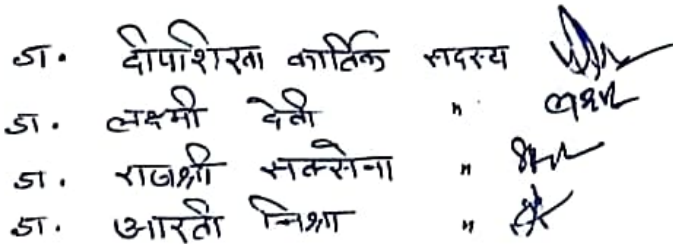 डा. दीपशिखा कार्तिक सदस्य
डा. लक्ष्मी देवी "
डा. राजश्री सक्सेना "
डा. आरती मिश्रा "